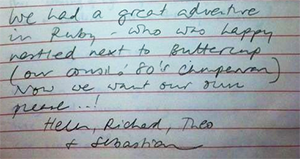 We had a great adventure
in Ruby - who was happy
nestled next to Buttercup
(our cousins' 80's Campervan)
Now we want our own
please..!
Helen, Richard, Theo
& Sebastian